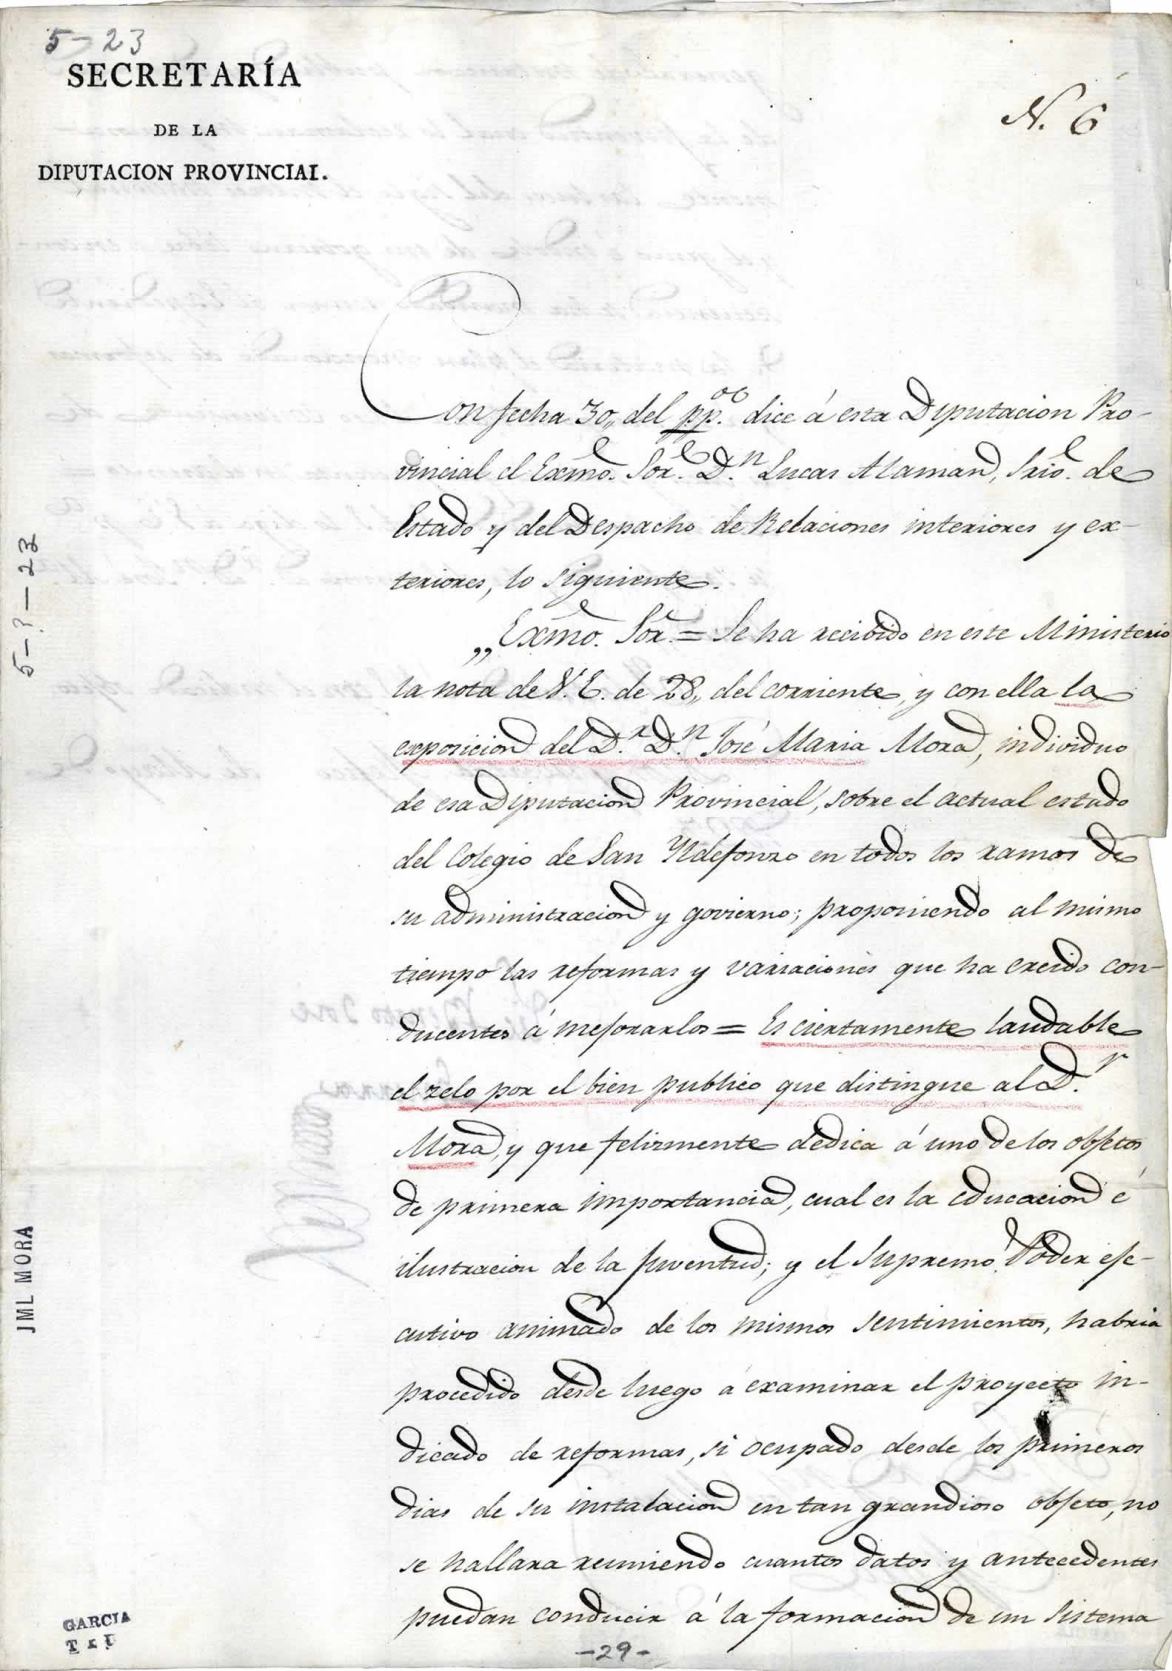 5-23
SECRETARÍA
DE LA
DIPUTACION PROVINCIAL.
N. 6
Con fecha 30,, del pp.do dice á esta Diputacion Pro-
vincial el Exmo. Sor. D.n Lucas Alaman, Srio. de
Estado y del Despacho de Relaciones interiores y ex-
teriores, lo siguiente.
„Exmo. Sor. = Se ha recibido en este Ministerio
la nota de V. E. de 28,, del corriente, y con ella la
exposicion del D.r D.n José Maria Mora, individuo
de esa Diputacion Provincial, sobre el actual estado
del Colegio de San Yldefonzo en todos los ramos de
su administracion y govierno; proponiendo al mismo
tiempo las reformas y variaciones que ha creido con-
ducentes á mejorarlos = Es ciertamente laudable
el zelo por el bien publico que distingue al D.r
Mora, y que felizmente dedica á uno de los objetos
de primera importancia, cual es la educacion é
ilustracion de la juventud; y el Supremo Poder eje-
cutivo animado de los mismos sentimientos, habria
procedido desde luego á examinar el proyecto in-
dicado de reformas, si ocupado desde los primeros
dias de su instalacion en tan grandioso objeto, no
se hallara reuniendo cuantos datos y antecedentes
puedan conducir á la formacion de un sistema
-29-
5-?-23
JML MORA
GARCIA